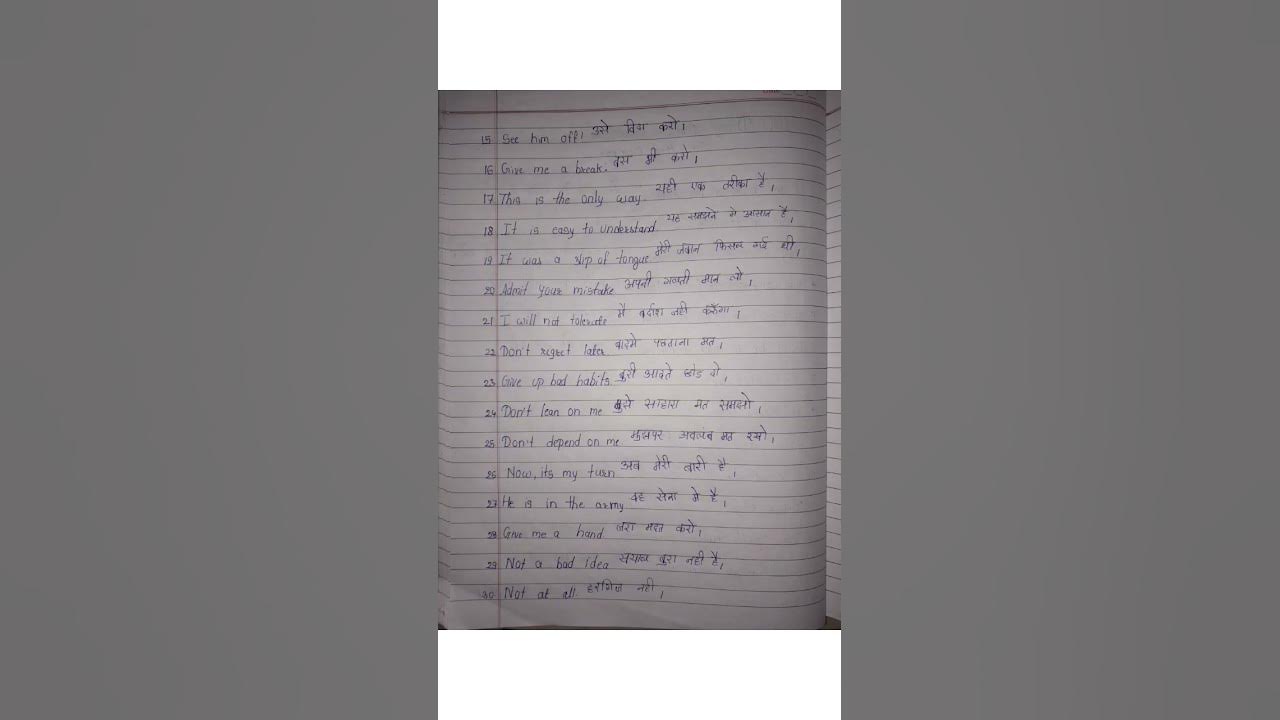 15 See him off! उसे विदा करो।
16 Give me a break. बस भी करो।
17 This is the only way. यही एक तरीका है।
18 It is easy to understand. यह समझने मे आसान है।
19 It was a slip of tongue मेरी जबान फिसल गई थी।
20 Admit your mistake अपनी गलती मान लो।
21 I will not tolerate मै बर्दाश नही करूँगा।
22 Don't regret later पछताना मत।
23 Give up bad habits. बुरी आदते छोड दो।
24 Don't lean on me साहारा मत समझो।
25 Don't depend on me मुझपर अवलंब मत रहो।
26 Now, its my turn अब मेरी बारी है।
27 He is in the army. वह सेना मे है।
28 Give me a hand जरा मदत करो।
29 Not a bad idea खयाल बुरा नही है।
30 Not at all. हरगिज नही।